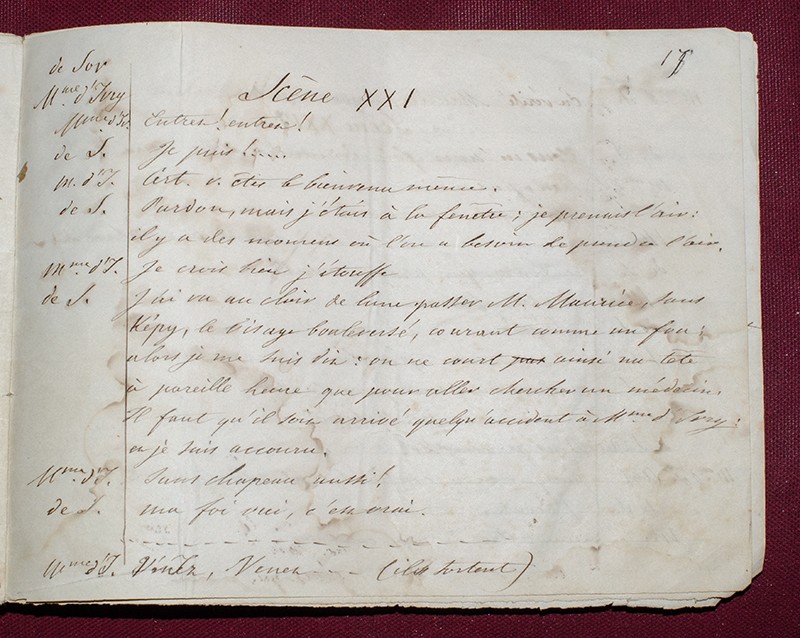 17
de Sor
Mme d'Ivry
Scène XXI
Mme d'Iv. Entrez! entrez!
de S. Je puis!.....
m. d'I. Cert. v. êtes le bienvenu même.
de S. Pardon, mais j'étais à la fenêtre; je prenais l'air:
il y a des momens où l'on a besoin de prendre l'air.
Mme d'I. Je crois bien j'étouffe
de S. J'ai vu au clair de lune passer M. Maurice, sans
Képy, le visage bouleversé, courant comme un fou;
alors je me suis dit: on ne court pas ainsi nu tête
à pareille heure que pour aller chercher un médecin.
Il faut qu'il soit arrivé quelqu'accident à Mme d'Ivry:
et je suis accouru.
Mme d'I. Sans chapeau aussi!
de S. ma foi oui, c'est vrai.
Mme d'I. Venez, Venez (ils sortent)